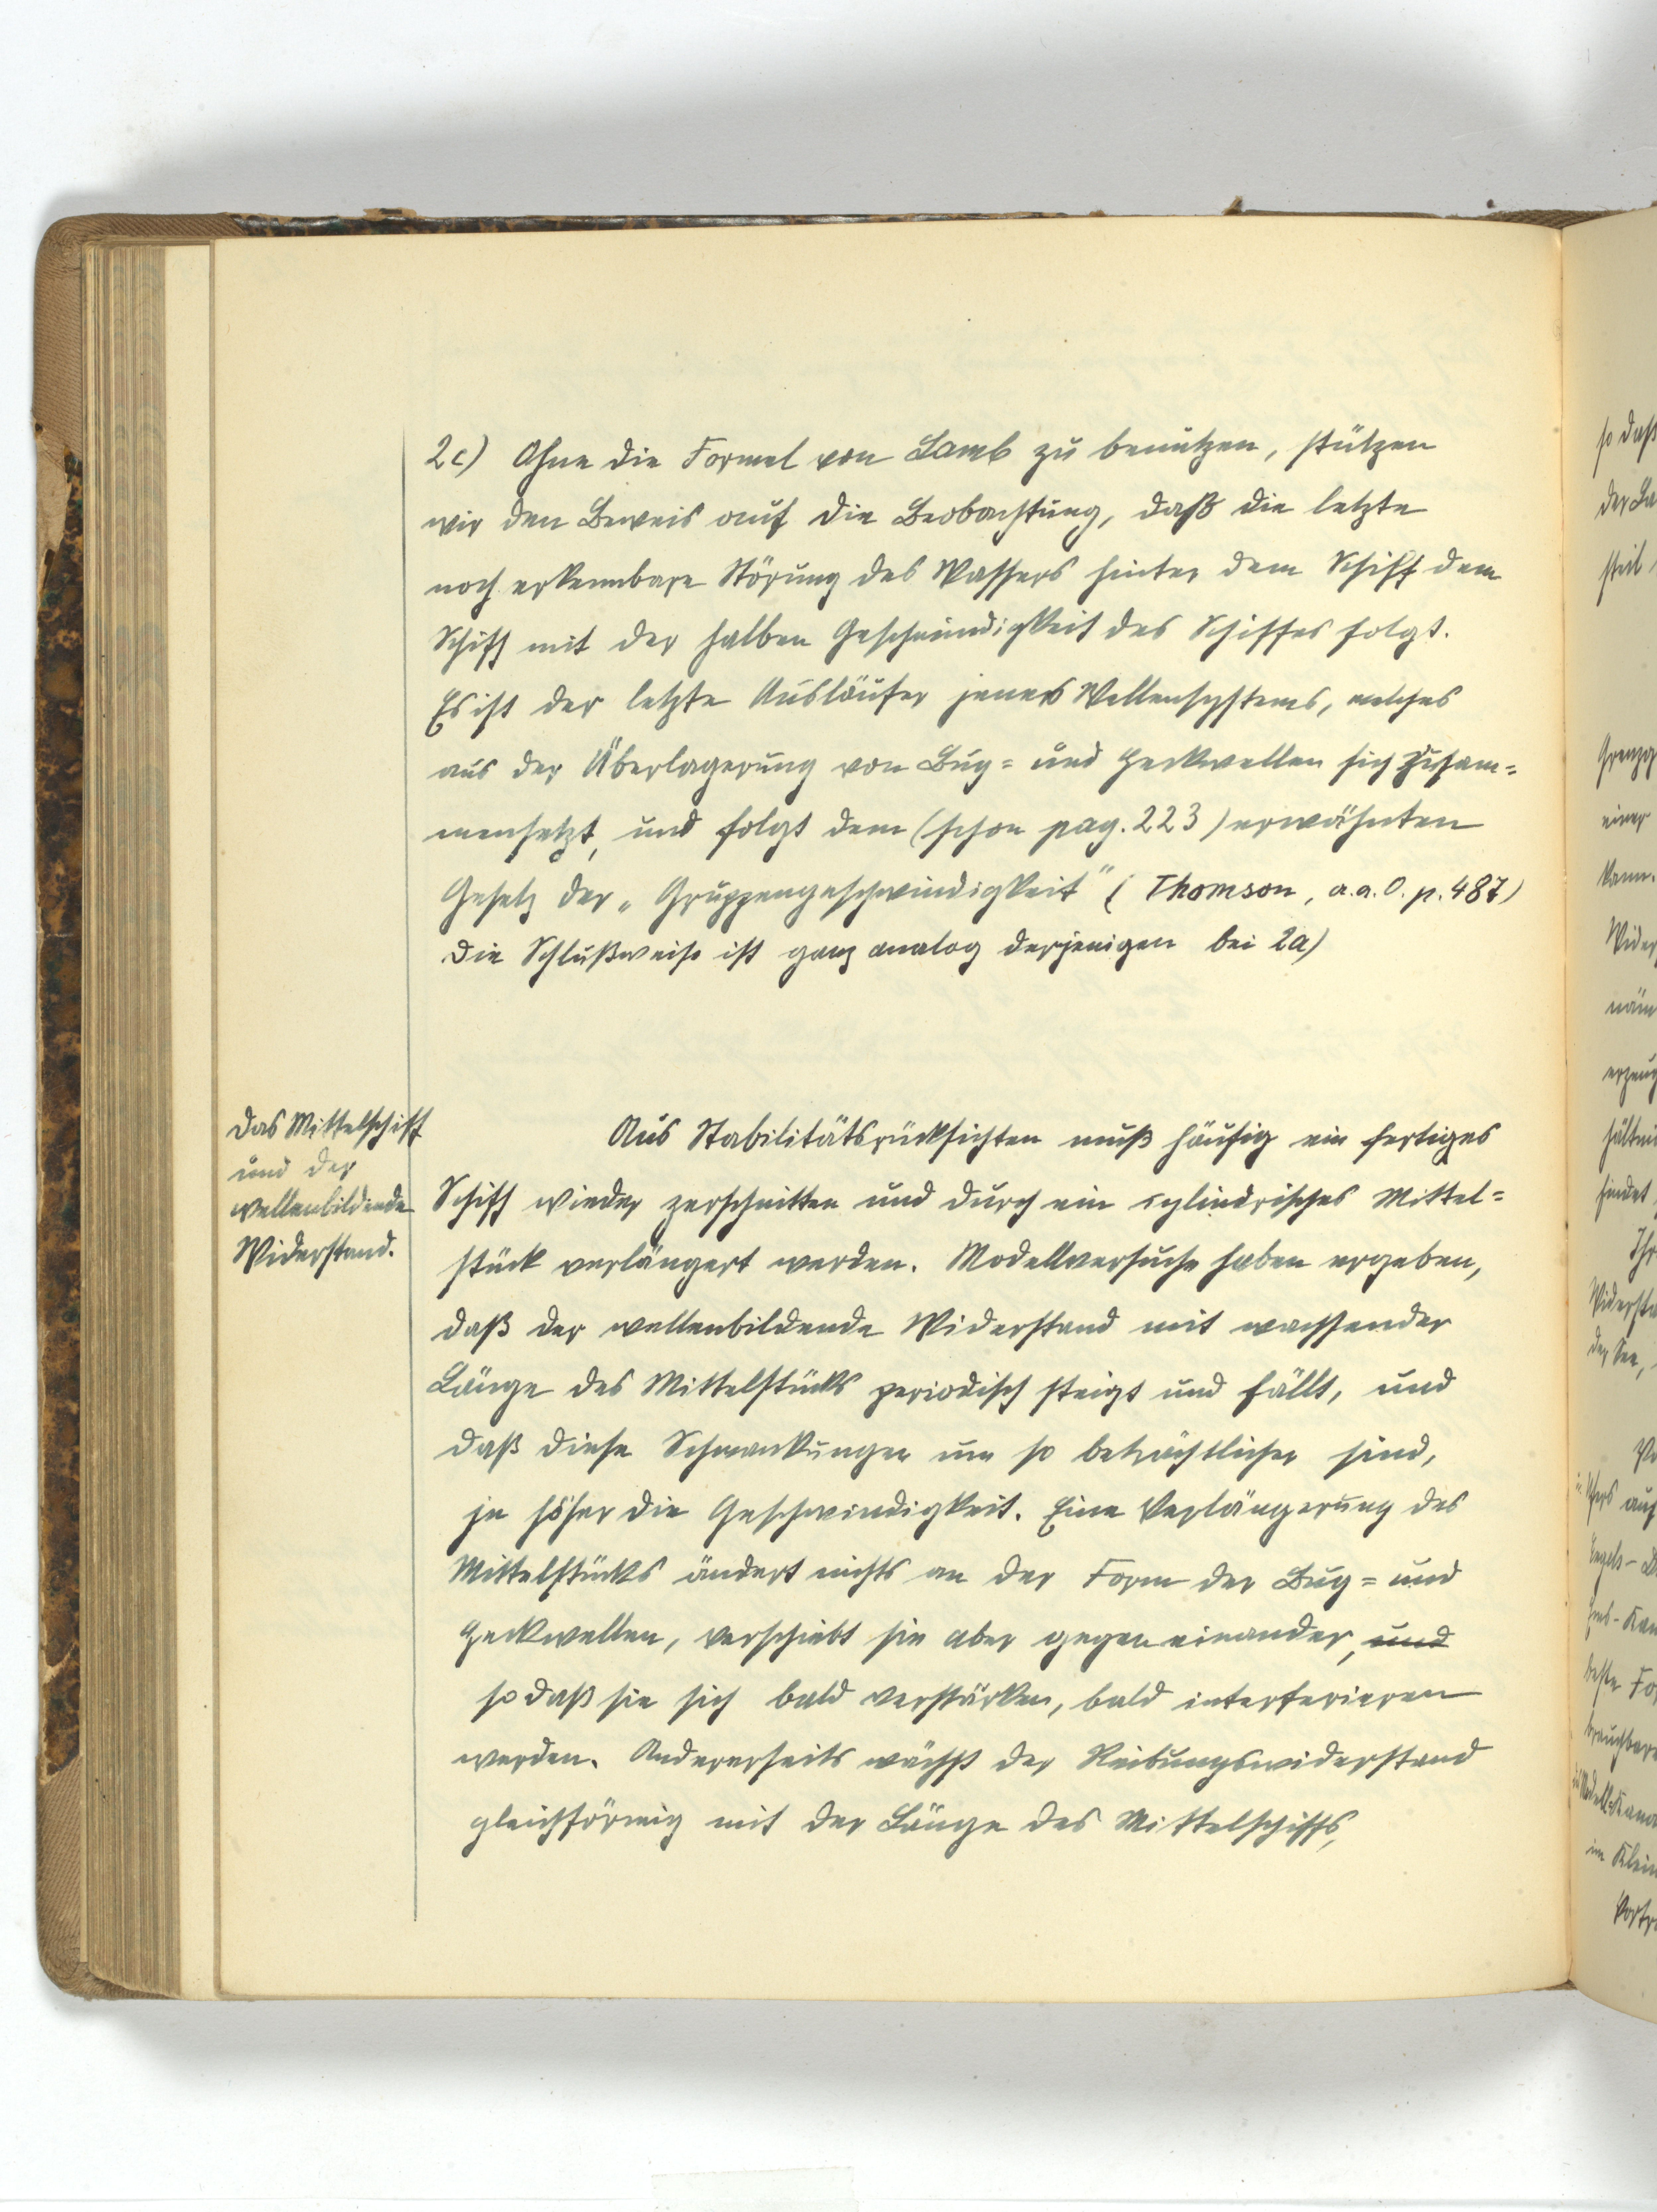 2c) Ohne die Formel von Lamb zu benutzen, stützen
wir den Beweis auf die Beobachtung, daß die letzte
noch erkennbare Störung des Wassers hinter dem Schiff dem
Schiff mit der halben Geschwindigkeit des Schiffes folgt.
Es ist der letzte Ausläufer jenes Wellensystems, welches
aus der Überlagerung von Bug= und Heckwellen sich zusam=
mensetzt, und folgt dem (schon pag. 223) erwähnten
Gesetz der „Gruppengeschwindigkeit" (Thomson, a.a.O. p. 487)
Die Schlußweise ist ganz analog derjenigen bei 2a)
Das Mittelschiff
und der
wellenbildende
Widerstand.
Aus Stabilitätsrücksichten muß häufig ein fertiges
Schiff wieder zerschnitten und durch ein cylindrisches Mittel=
stück verlängert werden. Modellversuche haben ergeben,
daß der wellenbildende Widerstand mit wachsender
Länge des Mittelstücks periodisch steigt und fällt, und
daß diese Schwankungen um so beträchtlicher sind,
je höher die Geschwindigkeit. Eine Verlängerung des
Mittelstücks ändert nichts an der Form der Bug= und
Heckwellen, verschiebt sie aber gegen einander, und
so daß sie sich bald verstärken, bald interferieren
werden. Andererseits wächst der Reibungswiderstand
gleichförmig mit der Länge des Mittelschiffs,
so daß
steil,
einer
kann.
findet